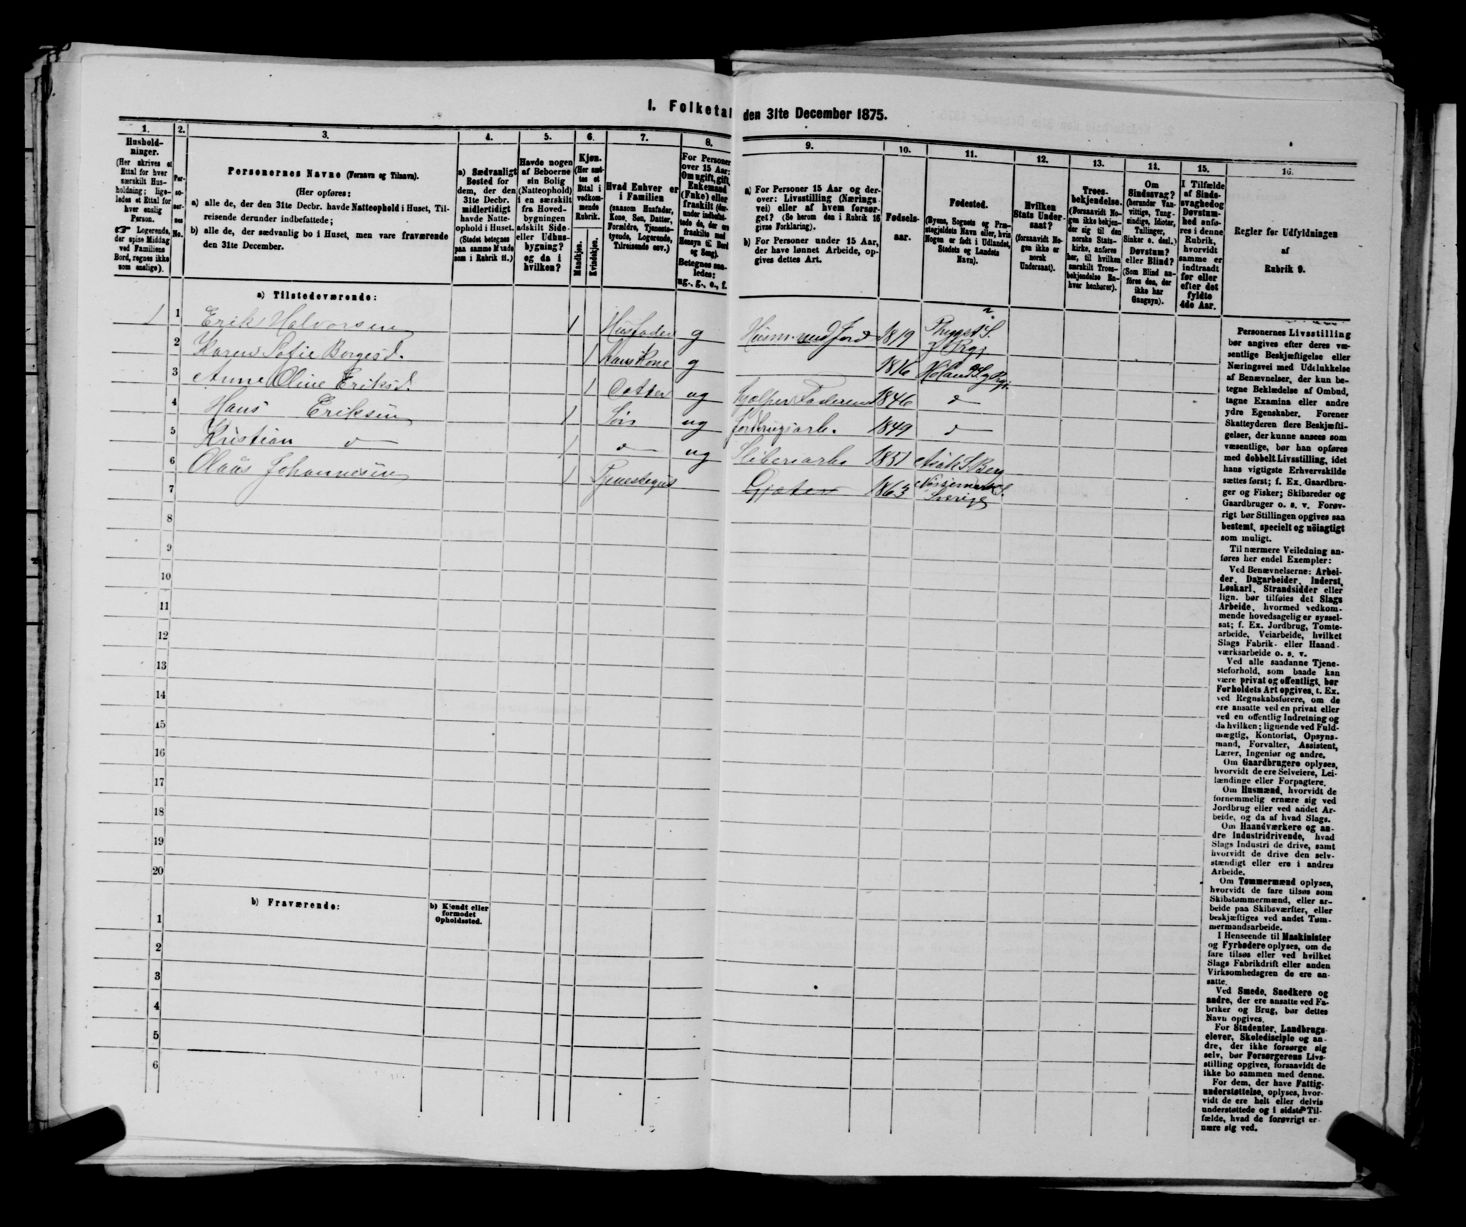 1. Folketal den 31te December 1875.
1.
Hushold-
ninger.
(Her skrives et
Ettal for hver
særskilt Hus-
holdning; lige-
ledes et Ettal for
hver enslig
Person.
☞ Logerende,
der spise Middag
ved Familiens
Bord, regnes ikke
som enslige).
2.
Per-
so-
ner-
nes
No.
3.
Personernes Navne (Fornavn og Tilnavn).
(Her opføres:
a) alle de, der den 31te Decbr. havde Natteophold i Huset, Til-
reisende derunder indbefattede;
b) alle de, der sædvanlig bo i Huset, men vare fraværende
den 31te December.
4.
a) Sædvanligt
Bosted for
dem, der den
31te Decbr.
midlertidigt
havde Natte-
ophold i Huset.
(Stedet betegnes
paa samme Maade
som i Rubrik 11.)
5.
Havde nogen
af Beboerne
sin Bolig
(Natteophold)
i en særskilt
fra Hoved-
bygningen
adskilt Side-
eller Udhus-
bygning?
og da i
hvilken?
6.
Kjøn.
(Her sæt-
tes et
Ettal i
vedkom-
mende
Rubrik.
Mandkjøn.
Kvindekjøn.
7.
Hvad Enhver er
i Familien
(saasom Husfader,
Kone, Søn, Datter,
Forældre, Tjeneste-
tyende, Logerende,
Tilreisende osv.)
8.
For Personer
over 15 Aar:
Om ugift, gift,
Enkemand
(Enke) eller
fraskilt
Betegnes saa-
ledes:
ug., g., e., f.
9.
a) For Personer 15 Aar og der-
over: Livsstilling (Nærings-
vei) eller af hvem forsør-
get? (Se herom den i Rubrik 16
givne Forklaring).
b) For Personer under 15 Aar,
der have lønnet Arbeide, op-
gives dettes Art.
10.
Fødsels-
aar.
11.
Fødested.
(Byens, Sognets og Præ-
stegjeldets Navn eller, hvis
Nogen er født i Udlandet,
Stedets og Landets
Navn).
12.
Hvilken
Stats Under-
saat?
(forsaavidt No-
gen ikke er
norsk
Undersaat).
13.
Troes-
bekjendelse.
(Forsaavidt No-
gen ikke bekjen-
der sig til den
norske Stats-
kirke, anføres
her, til hvilken
særskilt Troes-
bekjendelse En-
hver henhører).
14.
Om
Sindssvag?
(herunder Van-
vittige, Tung-
sindige, Idioter,
Tullinger,
Sinker o. desl.)
Døvstum?
eller Blind?
(Som Blind an-
føres den, der
ikke har
Gangsyn).
15.
I Tilfælde
af Sinds-
svaghed og
Døvstum-
hed anfø-
res i denne
Rubrik,
hvorvidt
samme er
indtraadt
før eller
efter det
fyldte
4de Aar.
16.
Regler for Udfyldningen
af
Rubrik 9.
a) Tilstedeværende:
1 1 Erik Halvorsen 1 Husfader g Husm. med Jord 1819
2 Karen Sofie Borgesd. 1 Hans Kone g 1816
3 Anne Oline Eriksd. 1 Datter ug hjelper Faderen 1846 do
4 Hans Eriksen 1 Søn ug 1849 do
5 Kristian do 1 do ug 1851
6 Olaus Johannesen 1 Gjæter 1863 Sverige
7
8
9
10
11
12
13
14
15
16
17
18
19
20
b) Fraværende:
b) Kjendt eller
formodet
Opholdssted.
1
2
3
4
5
6
Personernes Livsstilling
bør angives efter deres væ-
sentlige Beskjæftigelse eller
Næringsvei med Udelukkelse
af Benævnelser, der kun be-
tegne Bekledelse af Ombud,
tagne Examina eller andre
ydre Egenskaber. Forener
Skatteyderen flere Beskjæfti-
gelser, der kunne ansees som
væsentlige, bør han opføres
med dobbelt Livsstilling, idet
hans vigtigste Erhvervskilde
sættes først; f. Ex. Gaardbru-
ger og Fisker; Skibsreder og
Gaardbruger o. s. v. Forøv-
rigt bør Stillingen opgives saa
bestemt, specielt og nøiagtigt
som muligt.
Til nærmere Veiledning an-
føres her endel Exempler:
Ved Benævnelserne: Arbei-
der, Dagarbeider, Inderst,
Løskarl, Strandsidder eller
lign. bør tilføies det Slags
Arbeide, hvormed vedkom-
mende hovedsagelig er syssel-
sat; f. Ex. Jordbrug, Tomte-
arbeide, Veiarbeide, hvilket
Slags Fabrik- eller Haand-
værksarbeide o. s. v.
Ved alle saadanne Tjene-
steforhold, som baade kan
være privat og offentligt, bør
Forholdets Art opgives, t. Ex.
ved Regnskabsførere, om de
ere ansatte ved en privat eller
ved en offentlig Indretning og
da hvilken; lignende ved Fuld-
mægtig, Kontorist, Opsyns-
mand, Forvalter, Assistent,
Lærer, Ingeniør og andre.
Om Gaardbrugere oplyses,
hvorvidt de ere Selveiere, Lei-
lændinge eller Forpagtere.
Om Husmænd, hvorvidt de
fornemmelig ernære sig ved
Jordbrug eller ved andet Ar-
beide, og da af hvad Slags.
Om Haandværkere og an-
dre Industridrivende, hvad
Slags Industri de drive, samt
hvorvidt de drive den selv-
stændigt eller ere i andres
Arbeide.
Om Tømmermænd oplyses,
hvorvidt de fare tilsøs som
Skibstømmermænd, eller ar-
beide paa Skibsværfter, eller
beskjæftiges ved andet Tøm-
mermandsarbeide.
I Henseende til Maskinister
og Fyrbødere oplyses, om de
fare tilsøs eller ved hvilket
Slags Fabrikdrift eller anden
Virksomhedsgren de ere an-
satte.
Ved Smede, Snedkere og
andre, der ere ansatte ved Fa-
briker og Brug, bør dettes
Navn opgives.
For Studenter, Landbrugs-
elever, Skoledisciple og an-
dre, der ikke forsørge sig
selv, bør Forsørgerens Livs-
stilling opgives, forsaavidt de
ikke bo sammen med denne.
For dem, der have Fattig-
understøttelse, oplyses, hvor-
vidt de ere helt eller delvis
understøttede og i sidste Til-
fælde, hvad de forøvrigt er-
nære sig ved.